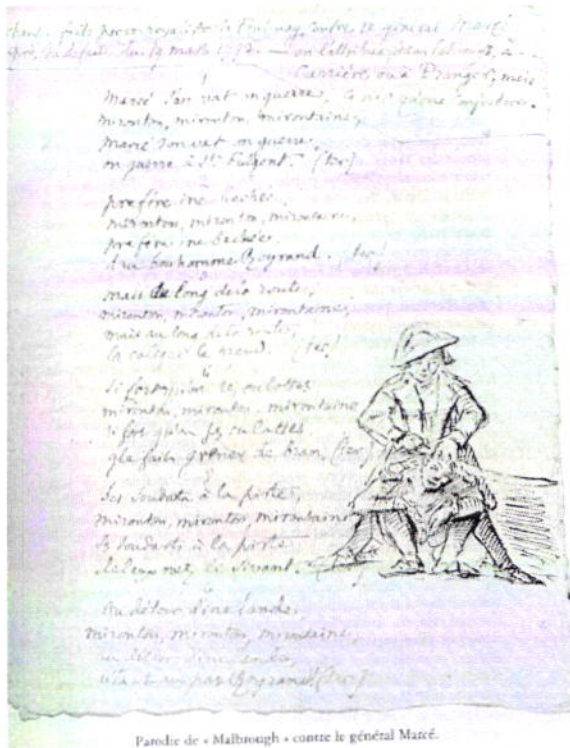 chans. faite par un royaliste de Fontenay, contre le général Marcé
après sa défaite du 19 mars 1793. — on l'attribue à
Carrière, ou à mais
Marcé s'en vat en guerre, ce n'est qu'une conjecture.
mironton, mironton, mirontaine,
Marcé s'en vat en guerre,
en guerre à St Fulgent. (ter)
2
prefère ine
mironton, mironton, mirontaine,
prefère ine
dau bonhomme Royrand. (ter)
mais le long de la route,
mironton, mironton, mirontaine,
mais au long de la route,
la colique le prend. (ter)
si fort culottes
mironton, mironton, mirontaine
si fort qu'en ses culottes
gle fait grenier de bran (ter)
5
Ses soudarts à la piste,
mironton, mironton, mirontaine
ses soudarts à la piste
de leur nez le sivant.
Au détour d'ine lande,
mironton, mironton, mirontaine,
au détour d'ine lande,
Royrand (ter)
Parodie de « Malbrough » contre le général Marcé.